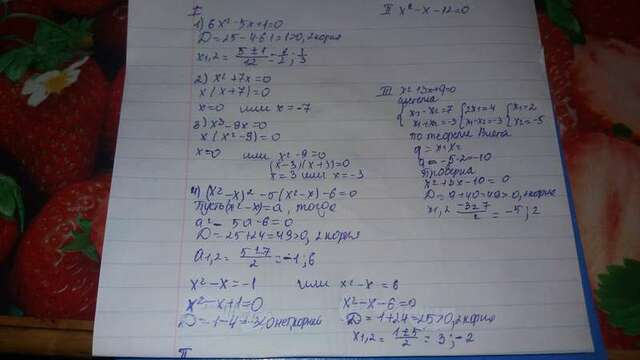 I
1) 6x² - 5x + 1 = 0
D = 25 - 4·6·1 = 1 > 0, 2 корня
x1,2 = (5 ± 1)/12 = 1/2; 1/3
2) x² + 7x = 0
x(x + 7) = 0
x = 0 или x = -7
3) x³ - 9x = 0
x(x² - 9) = 0
x = 0 или x² - 9 = 0
(x - 3)(x + 3) = 0
x = 3 или x = -3
4) (x² - x)² - 5(x² - x) - 6 = 0
Пусть (x² - x) = a, тогда
a² - 5a - 6 = 0
D = 25 + 24 = 49 > 0, 2 корня
a1,2 = (5 ± 7)/2 = -1; 6
x² - x = -1 или x² - x = 6
x² - x + 1 = 0
D = 1 - 4 = -3 < 0 нет корней
x² - x - 6 = 0
D = 1 + 24 = 25 > 0, 2 корня
x1,2 = (1 ± 5)/2 = 3; -2
II
II x² - x - 12 = 0
III x² + 3x + q = 0
система
{ x1 - x2 = 7 { 2x1 = 4 { x1 = 2
{ x1 + x2 = -3 { x1 + x2 = -3 { x2 = -5
по теореме Виета
q = x1·x2
q = -5·2 = -10
Проверка
x² + 3x - 10 = 0
D = 9 + 40 = 49 > 0, 2 корня
x1,2 = (-3 ± 7)/2 = -5; 2